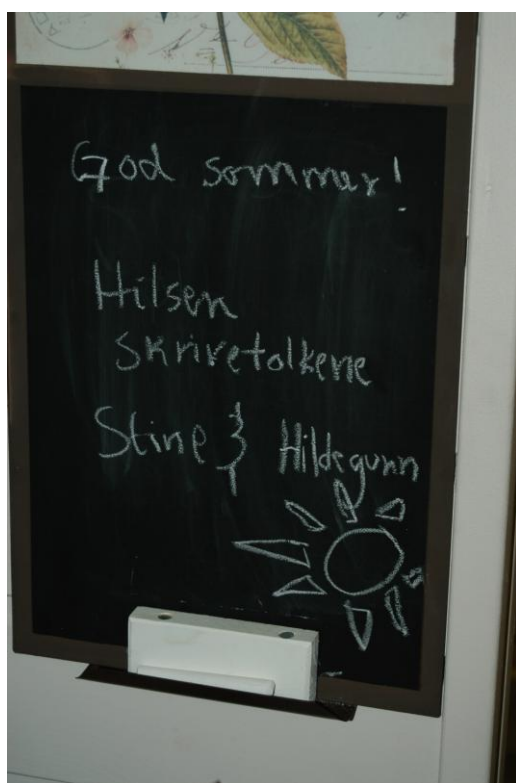 God sommer!
Hilsen
skrivetolkene
Stine & Hildegunn